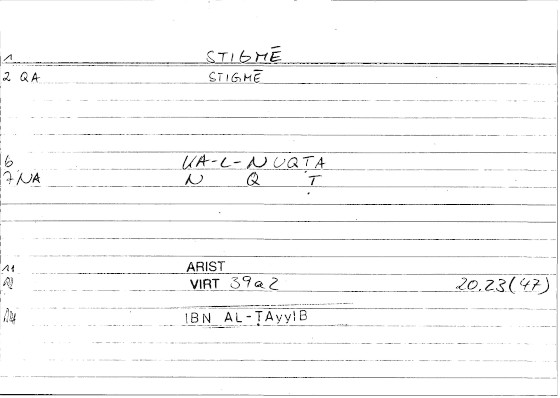 1 STIGMĒ
2 QA STIGMĒ
6 KA-L-NUQṬA
7/NA N Q Ṭ
11 ARIST
VIRT 39a2 20.23(47)
IBN AL-ṬAyyIB